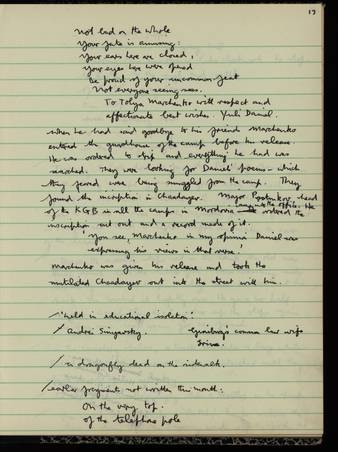 19
Not bad on the whole
Your fate is amusing:
Your ears here are closed,
Your eyes here were opened
Be proud of your uncommon feat
Not everyone seeing sees.
To Tolya Marchenko with respect and
affectionate best wishes. Yuli Daniel.
When he had said goodbye to his friends Marchenko
entered the guardhouse of the camp before his release.
He was ordered to strip and everything he had was
searched. They were looking for Daniel's poems - which
they feared were being smuggled from the camp. They
found the inscription in Chaadayev. Major Postnikov, head
of the KGB in all the camps in Mordovia came to the office. He ordered the
inscription cut out and a record made of it.
"You see, Marchenko in my opinion Daniel was
expressing his views in that verse."
Marchenko was given his release and took the
mutilated Chaadayev out into the street with him.
"held in educational isolation"
/ Andrei Sinyavsky. Ginzburg's common law wife
Irina.
/ a dragonfly dead on the sidewalk.
/ earlier fragment not written this month:
On the very top
of the telephone pole